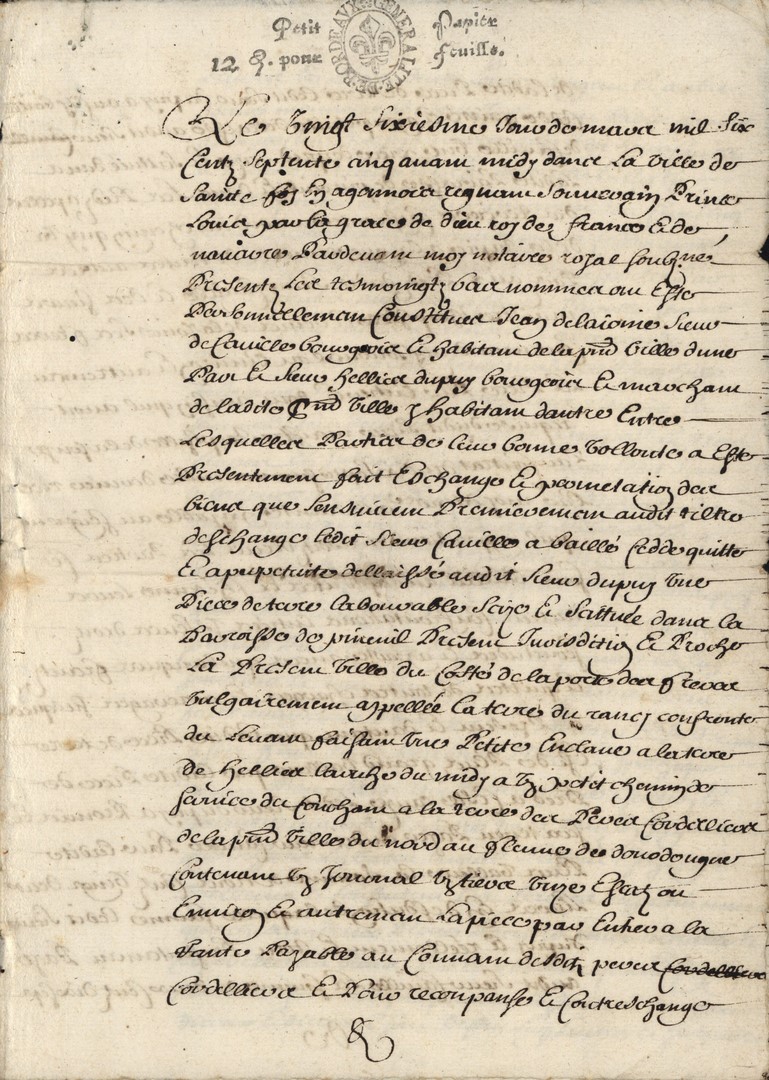 Petit Papier
12 d. pour feuille.
GENERALITE DE BORDEAUX
Le Vingt sixiesme Jour de mars mil six
Centz septente cinq avant midy dans La Ville de
Sainte foy En agennois regnant Souuerain Prince
Louis par la grace de dieu roy de france & de
nauarre Pardeuant moy notaire royal soubz.né
Presentz Les tesmoingtz bas nommes ont Esté
Personnellemant Constitués Jean de Sieur
de Cauille bourgois & habitant de la pnt Ville dune
Part & Sieur hellies dupuy bourgeois & marchant
de ladite pnt Ville y habitant dautre Entre
Lesquelles Parties de leur bonne Vollonté a Esté
Presentement fait Eschange & permutation des
biens que sensuiuent Premierement audit tiltre
deschange ledit Sieur Cauille a baillé Cedde quitte
& a perpetuité dellaissé audit Sieur dupuy Vne
Piece de terre labourable Scize & scittuée dans la
Parroisse de pineuil Present Jurisdition & Proche
La Present Ville du Costé de la porte des freres
Vulgairement appellée La terre du rancj confronte
du Leuant faisant Vne Petite Enclaue a la terre
De hellies du midy a Vn petit chemin de
seruice du Couchant a la terre des Peres Cordelliers
de la pnt Ville du nord au fleuue de dourdougne
Contenant Vn Journal Vn tiers Vnze Escatz ou
Enuiron & autremant La piece par Entier a la
Rante Payable au Conuant desditz peres
Cordelliers & Pour recompanse & Contreschange